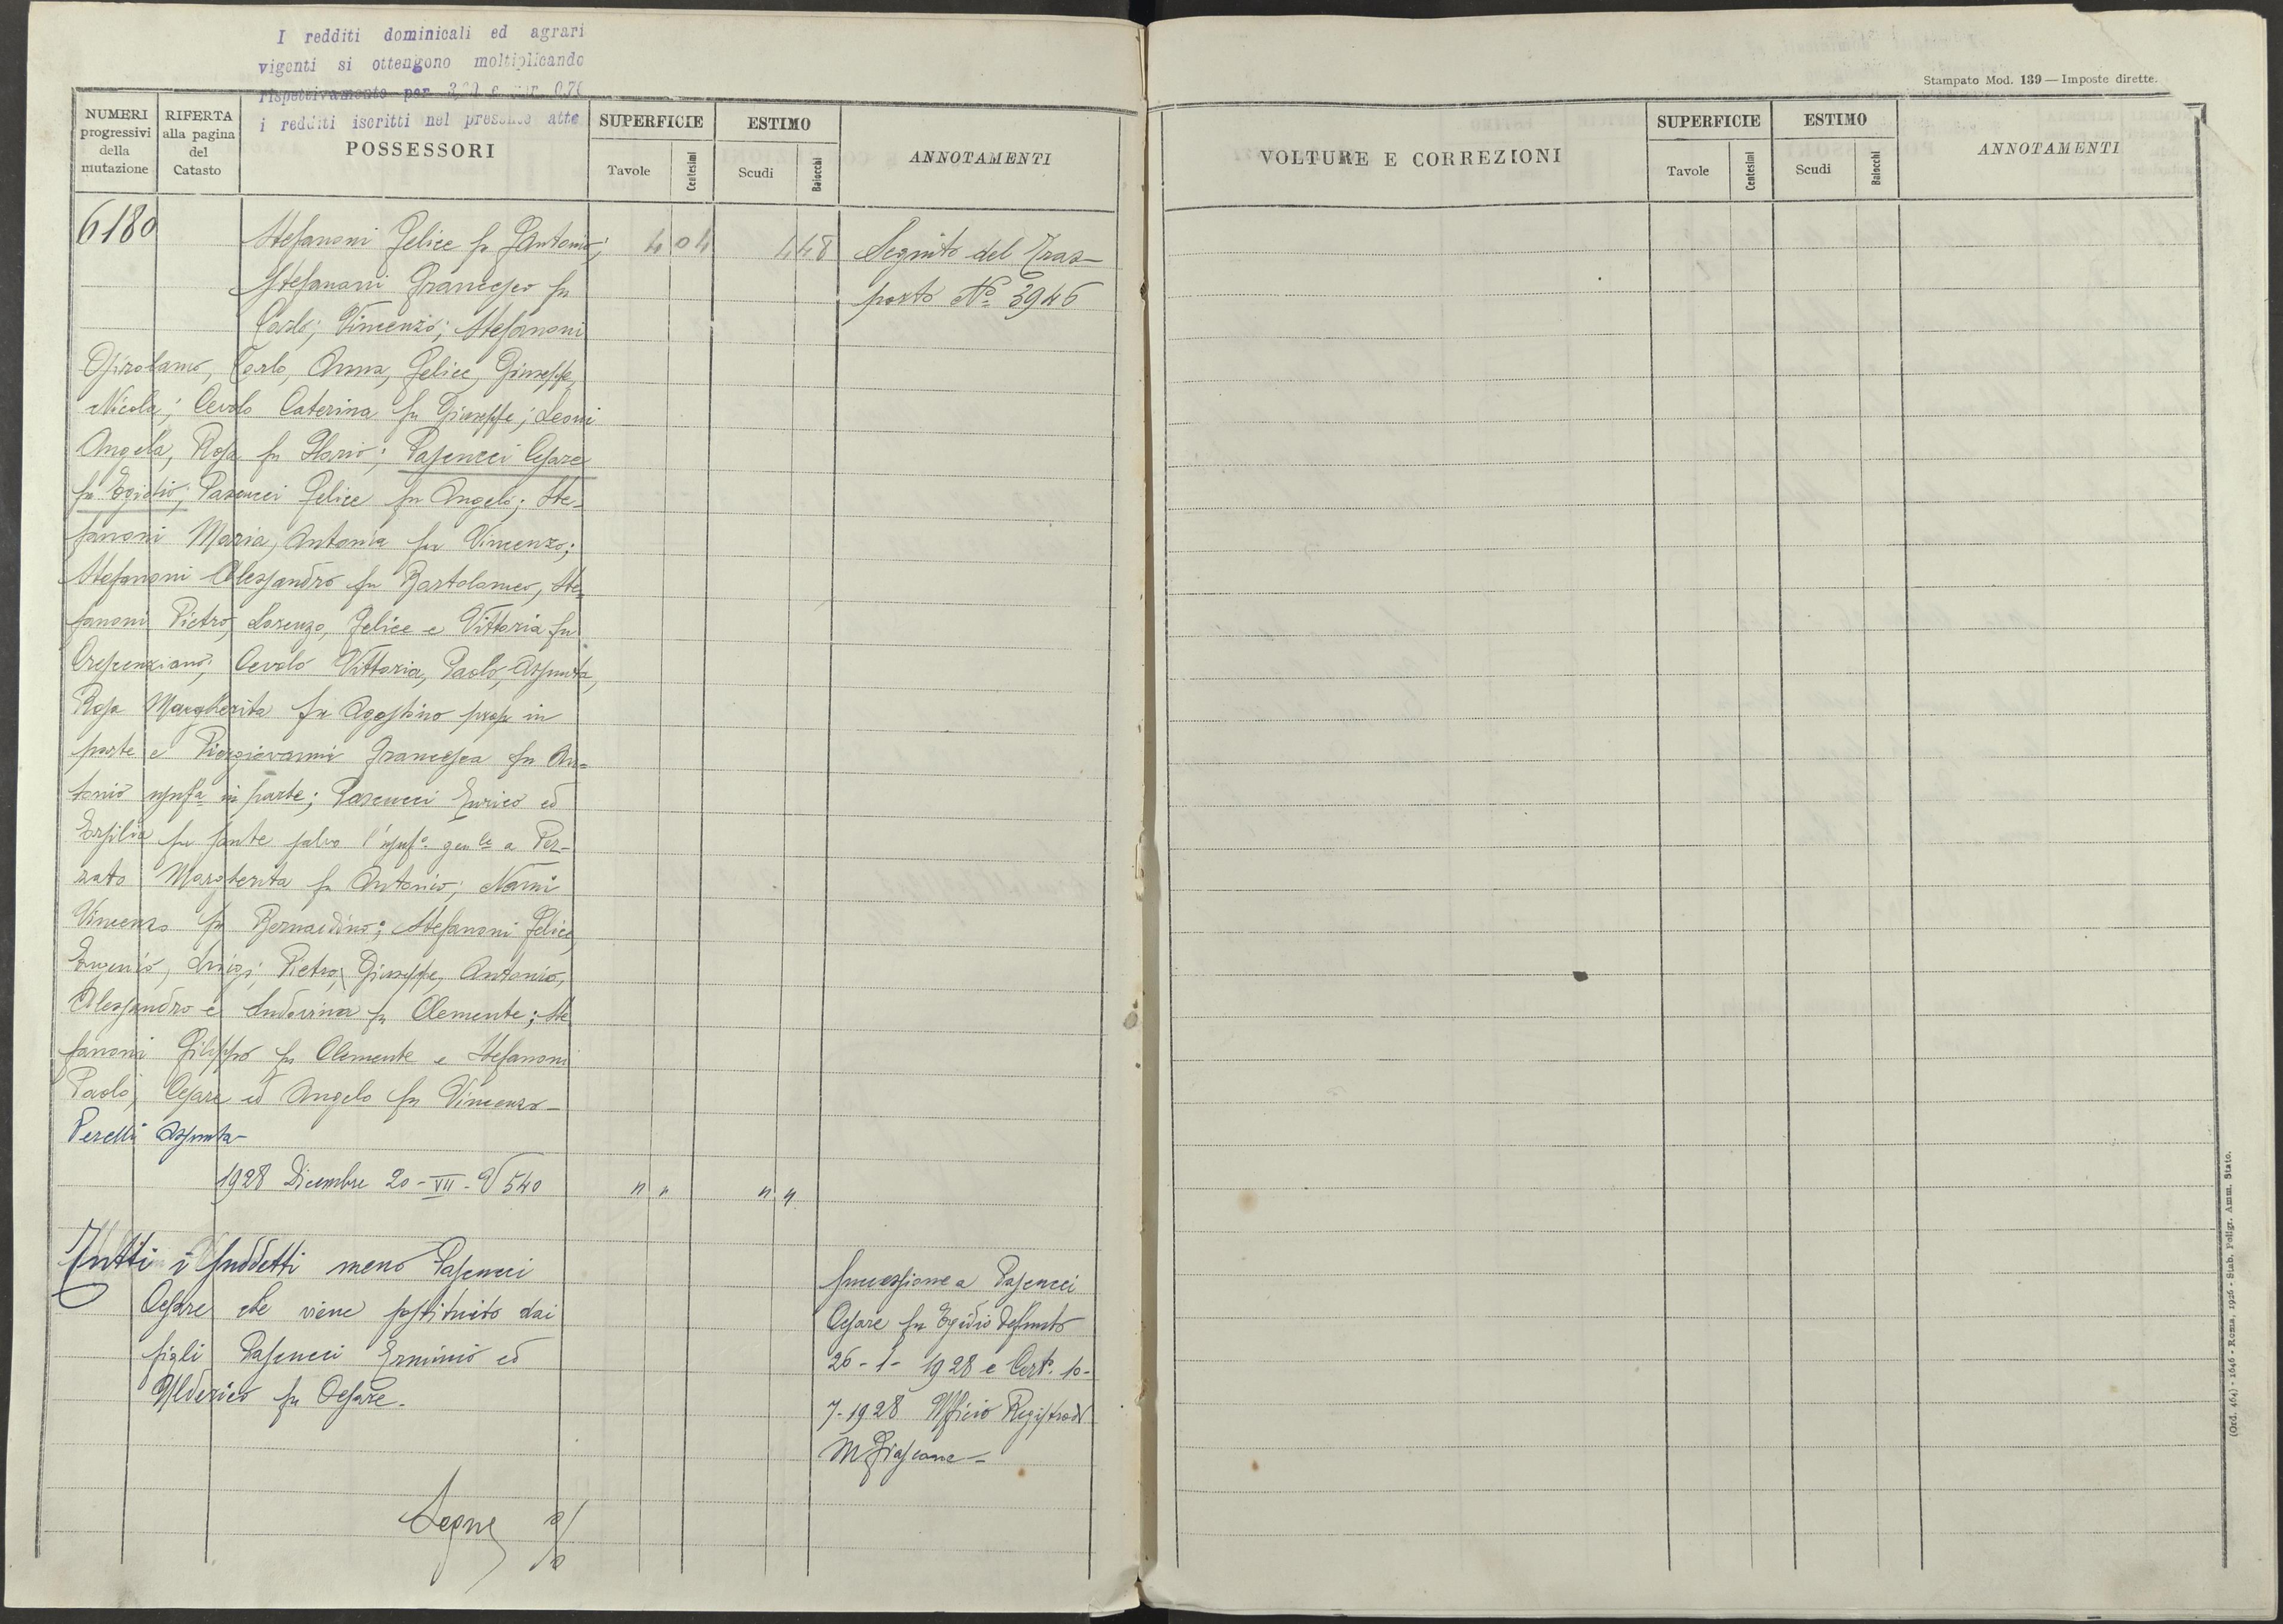 I redditi dominicali ed agrari
vigenti si ottengono moltiplicando
rispettivamente per 3,20 e per 0,70
i redditi iscritti nel presente atto
NUMERI progressivi della mutazione
RIFERTA alla pagina del Catasto
POSSESSORI
SUPERFICIE
Tavole
Centesimi
ESTIMO
Scudi
Baiocchi
ANNOTAMENTI
6180
Stefanoni Felice fu Antonio;
4 04
4 48
Seguito del Tras-
Stefanoni Francesco fu
porto No. 3946
Carlo; Vincenzo; Stefanoni
Girolamo, Carlo, Anna, Felice, Giuseppe,
Nicola; Cevolo Caterina fu Giuseppe; Leoni
Angela, Rosa fu Ilario; Pascucci Cesare
fu Egidio; Pascucci Felice fu Angelo; Ste-
fanoni Maria, Antonia fu Vincenzo;
Stefanoni Alessandro fu Bartolomeo, Ste-
fanoni Pietro, Lorenzo, Felice e Vittoria fu
Crescenziano; Cevolo Vittoria, Paolo, Assunta,
Rosa Margherita fu Agostino prop in
parte e Piergiovanni Francesca fu An-
tonio usufa in parte; Pascucci Enrico ed
Ersilia fu Sante salvo l'usufo genle a Per-
zato Margherita fu Antonio; Nami
Vincenzo fu Bernardino; Stefanoni Felice,
Eugenio, Luigi, Pietro, Giuseppe, Antonio,
Alessandro e Indovina fu Clemente; Ste
fanoni Filippo fu Clemente e Stefanoni
Paolo, Cesare ed Angelo fu Vincenzo-
Perelli Assunta-
1928 Dicembre 20-VII-V 540
" "
" "
Tutti i suddetti meno Pascucci
Cesare che viene sostituito dai
figli Pascucci Erminio ed
Ulderico fu Cesare.
Successione a Pascucci
Cesare fu Egidio defunto
26-1-1928 e Certo. 10-
7-1928 Ufficio Registro di
M Fiascone-
Segue
Stampato Mod. 139 — Imposte dirette.
VOLTURE E CORREZIONI
SUPERFICIE
Tavole
Centesimi
ESTIMO
Scudi
Baiocchi
ANNOTAMENTI
(Ord. 464) - 1646 - Roma, 1926 - Stab. Poligr. Amm. Stato.